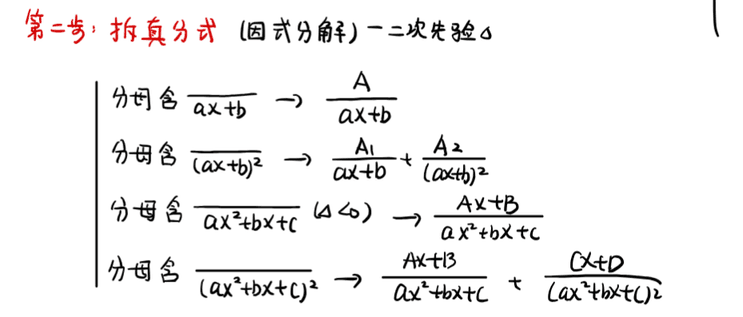 第二步：拆真分式 (因式分解) 一二次先验△
分母含 1/(ax+b) → A/(ax+b)
分母含 1/(ax+b)² → A₁/(ax+b) + A₂/(ax+b)²
分母含 1/(ax²+bx+c) (△<0) → (Ax+B)/(ax²+bx+c)
分母含 1/(ax²+bx+c)² → (Ax+B)/(ax²+bx+c) + (Cx+D)/(ax²+bx+c)²